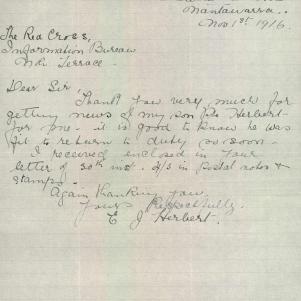 Nantawarra.
Nov 1st 1916.
The Red Cross,
Information Bureau
Nth Terrace.
Dear Sir,
Thank you very much for
getting news of my son Pte Herbert
for me - it is good to know he was
fit to return to duty so soon.
I received enclosed in your
letter of 30th inst. 3/3 in postal notes &
stamps.
Again thanking you.
Yours Respectfully.
E J Herbert.